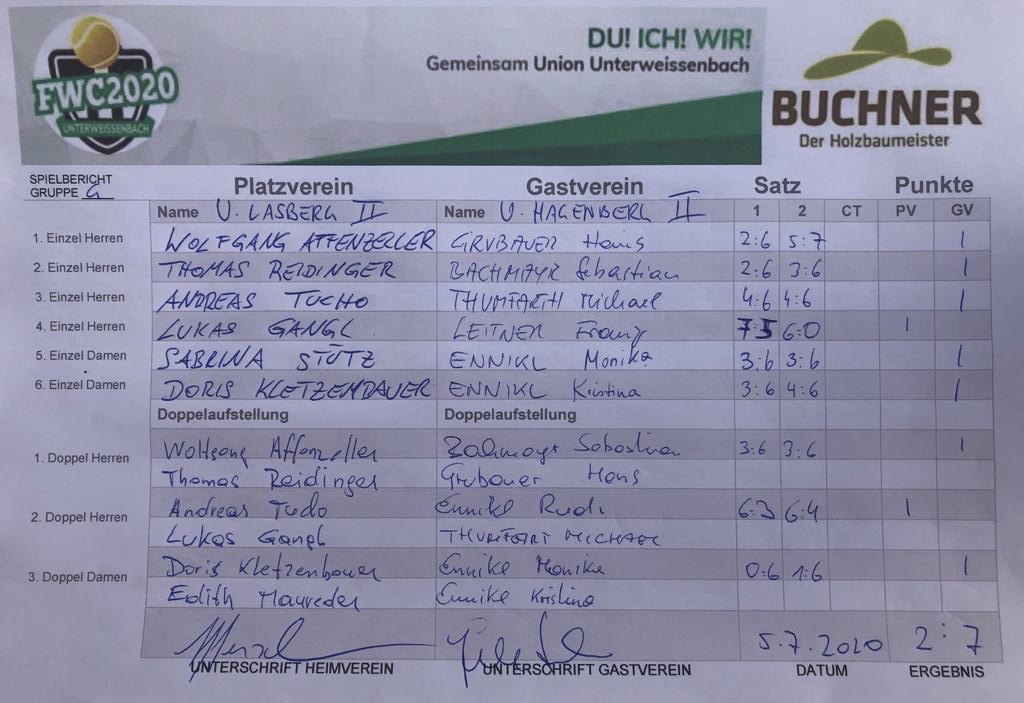 FWC2020
UNTERWEISSENBACH
DU! ICH! WIR!
Gemeinsam Union Unterweissenbach
BUCHNER
Der Holzbaumeister
SPIELBERICHT
GRUPPE G
Platzverein Gastverein Satz Punkte
Name U. LASBERG II Name U. HAGENBERG II 1 2 CT PV GV
1. Einzel Herren WOLFGANG AFFENZELLER GRUBAUER Hans 2:6 5:7 1
2. Einzel Herren THOMAS REIDINGER BACHMAYR Sebastian 2:6 3:6 1
3. Einzel Herren ANDREAS TUCHO THUMFARTH Michael 4:6 4:6 1
4. Einzel Herren LUKAS GANGL LEITNER Franz 7:5 6:0 1
5. Einzel Damen SABRINA STÜTZ ENNIKL Monika 3:6 3:6 1
6. Einzel Damen DORIS KLETZENBAUER ENNIKL Kristina 3:6 4:6 1
Doppelaufstellung Doppelaufstellung
1. Doppel Herren Wolfgang Affenzeller Bachmayr Sebastian 3:6 3:6 1
Thomas Reidinger Grubauer Hans
2. Doppel Herren Andreas Tucho Ennikl Rudi 6:3 6:4 1
Lukas Gangl THUMFART MICHAEL
3. Doppel Damen Doris Kletzenbauer Ennikl Monika 0:6 1:6 1
Edith Maureder Ennikl Kristina
5.7.2020 2:7
UNTERSCHRIFT HEIMVEREIN UNTERSCHRIFT GASTVEREIN DATUM ERGEBNIS